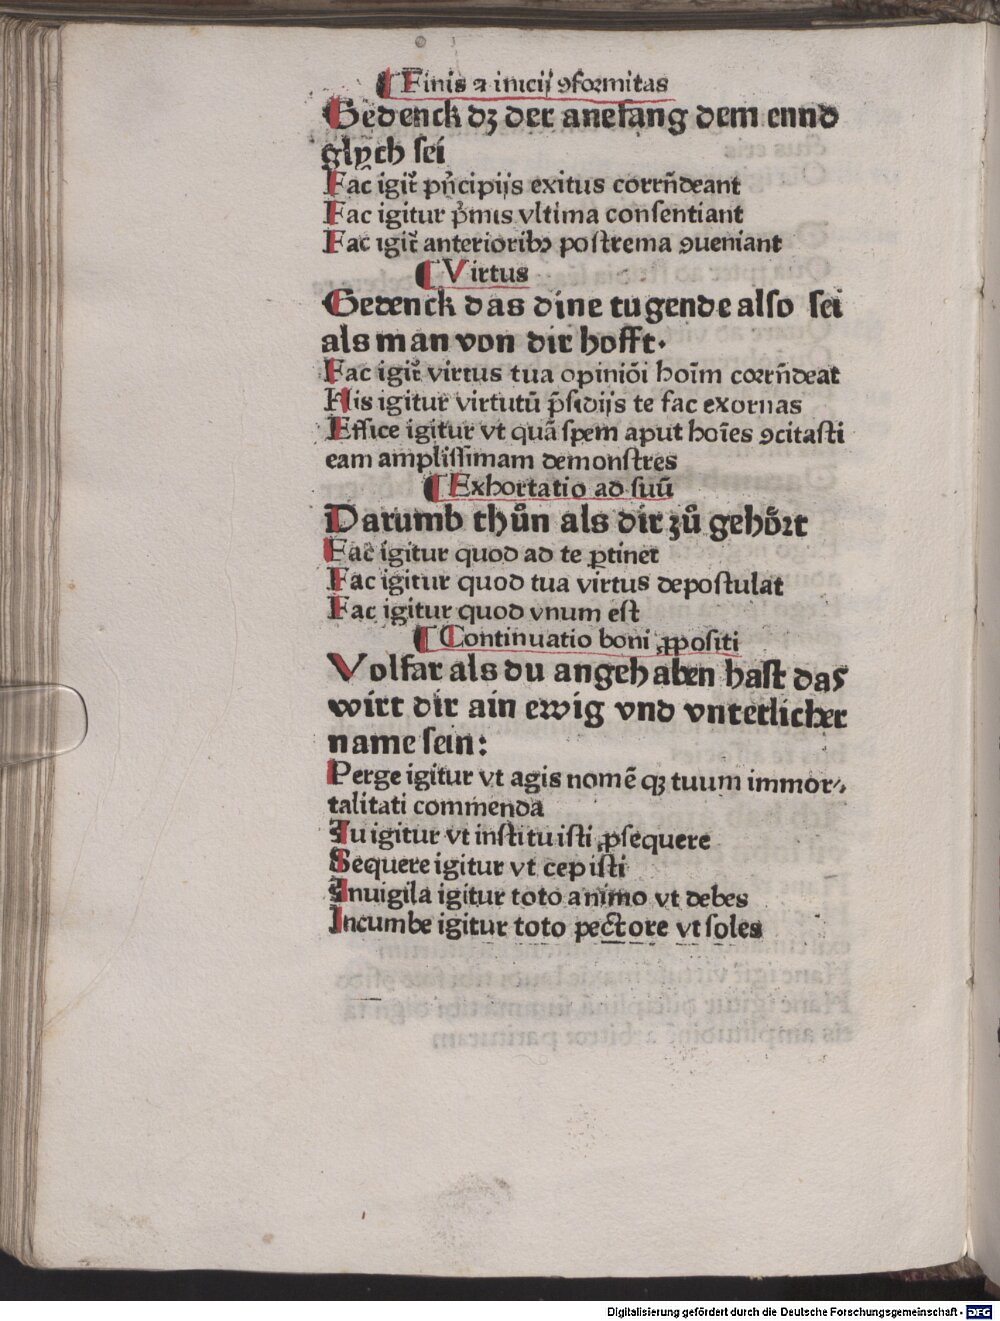 ¶ Finis ⁊ inicij ꝯformitas
Gedenck dꝫ der anefang dem ennd
glych sei
Fac̄ igit᷑ pṅcipijs exitus correṅdeant
Fac igitur p̊mis vltima consentiant
Fac igit᷑ anterioribꝰ postrema ꝯueniant
¶ Virtus
Gedenck das dine tugende also sei
als man von dir hofft.
Fac igit᷑ virtus tua opiniōi hoīm correṅdeat
His igitur virtutū p̄sidijs te fac exornas
Effice igitur vt quā spem aput hoīes ꝯcitasti
eam amplissimam demonstres
¶ Exhortatio ad suū
Darumb thůn als dir zů gehoͤrt
Fac igitur quod ad te ꝑtinet
Fac igitur quod tua virtus depostulat
Fac igitur quod vnum est
¶ Continuatio boni ꝓpositi
Volfar als du angehaben hast das
wirt dir ain ewig vnd vnterlicher
name sein:
Perge igitur vt agis nomē qꝫ tuum immor⸗
talitati commenda
Tu igitur vt instituisti ꝓsequere
Sequere igitur vt cepisti
Inuigila igitur toto animo vt debes
Incumbe igitur toto pectore vt soles
Digitalisierung gefördert durch die Deutsche Forschungsgemeinschaft - DFG